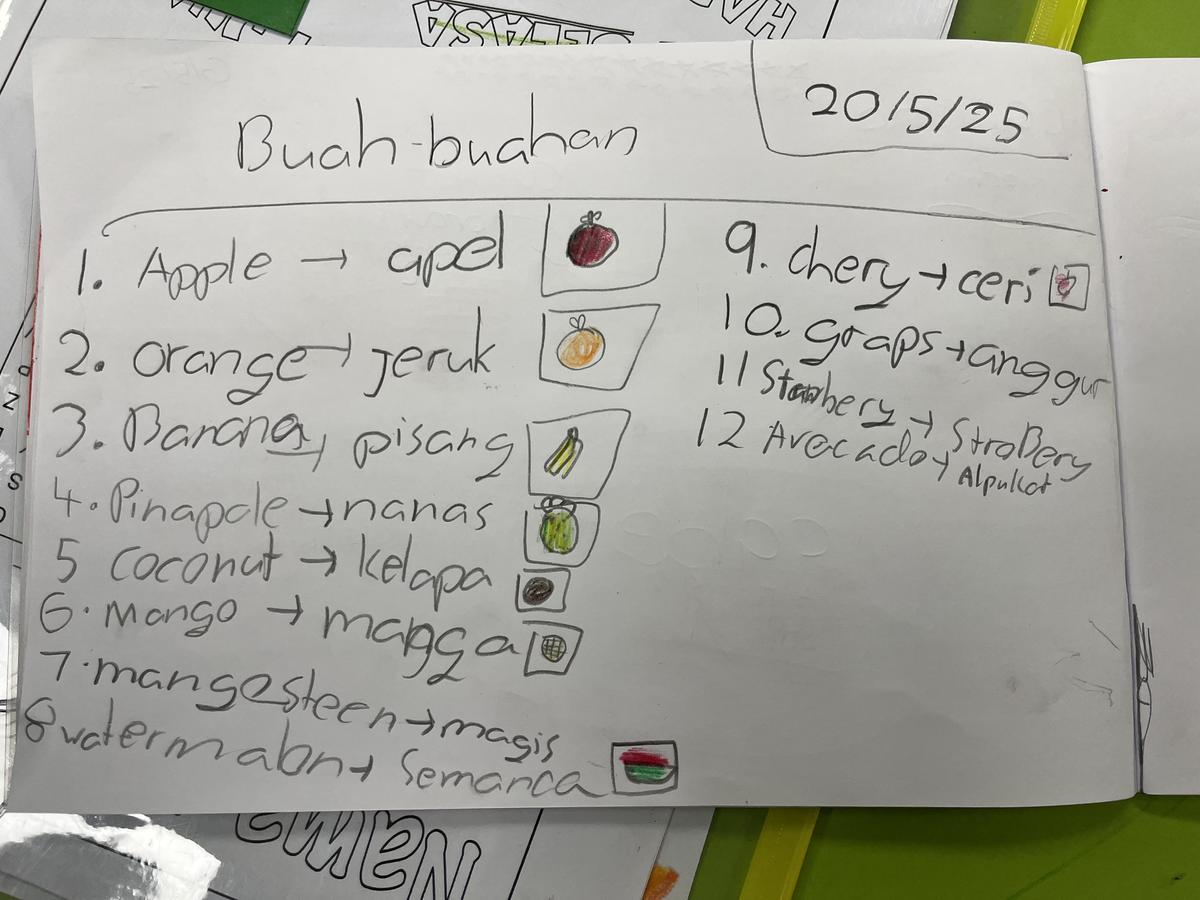 SELASA
20/5/25
Buah-buahan
1. Apple → apel
2. orange → jeruk
3. Banana → pisang
4. Pinapple → nanas
5 coconut → kelapa
6. mango → mangga
7. mangosteen → magis
8 watermaln → Semanca
9. chery → ceri
10. graps → anggur
11 Stawbery → StroBery
12 Avocado → Alpukat
Nama